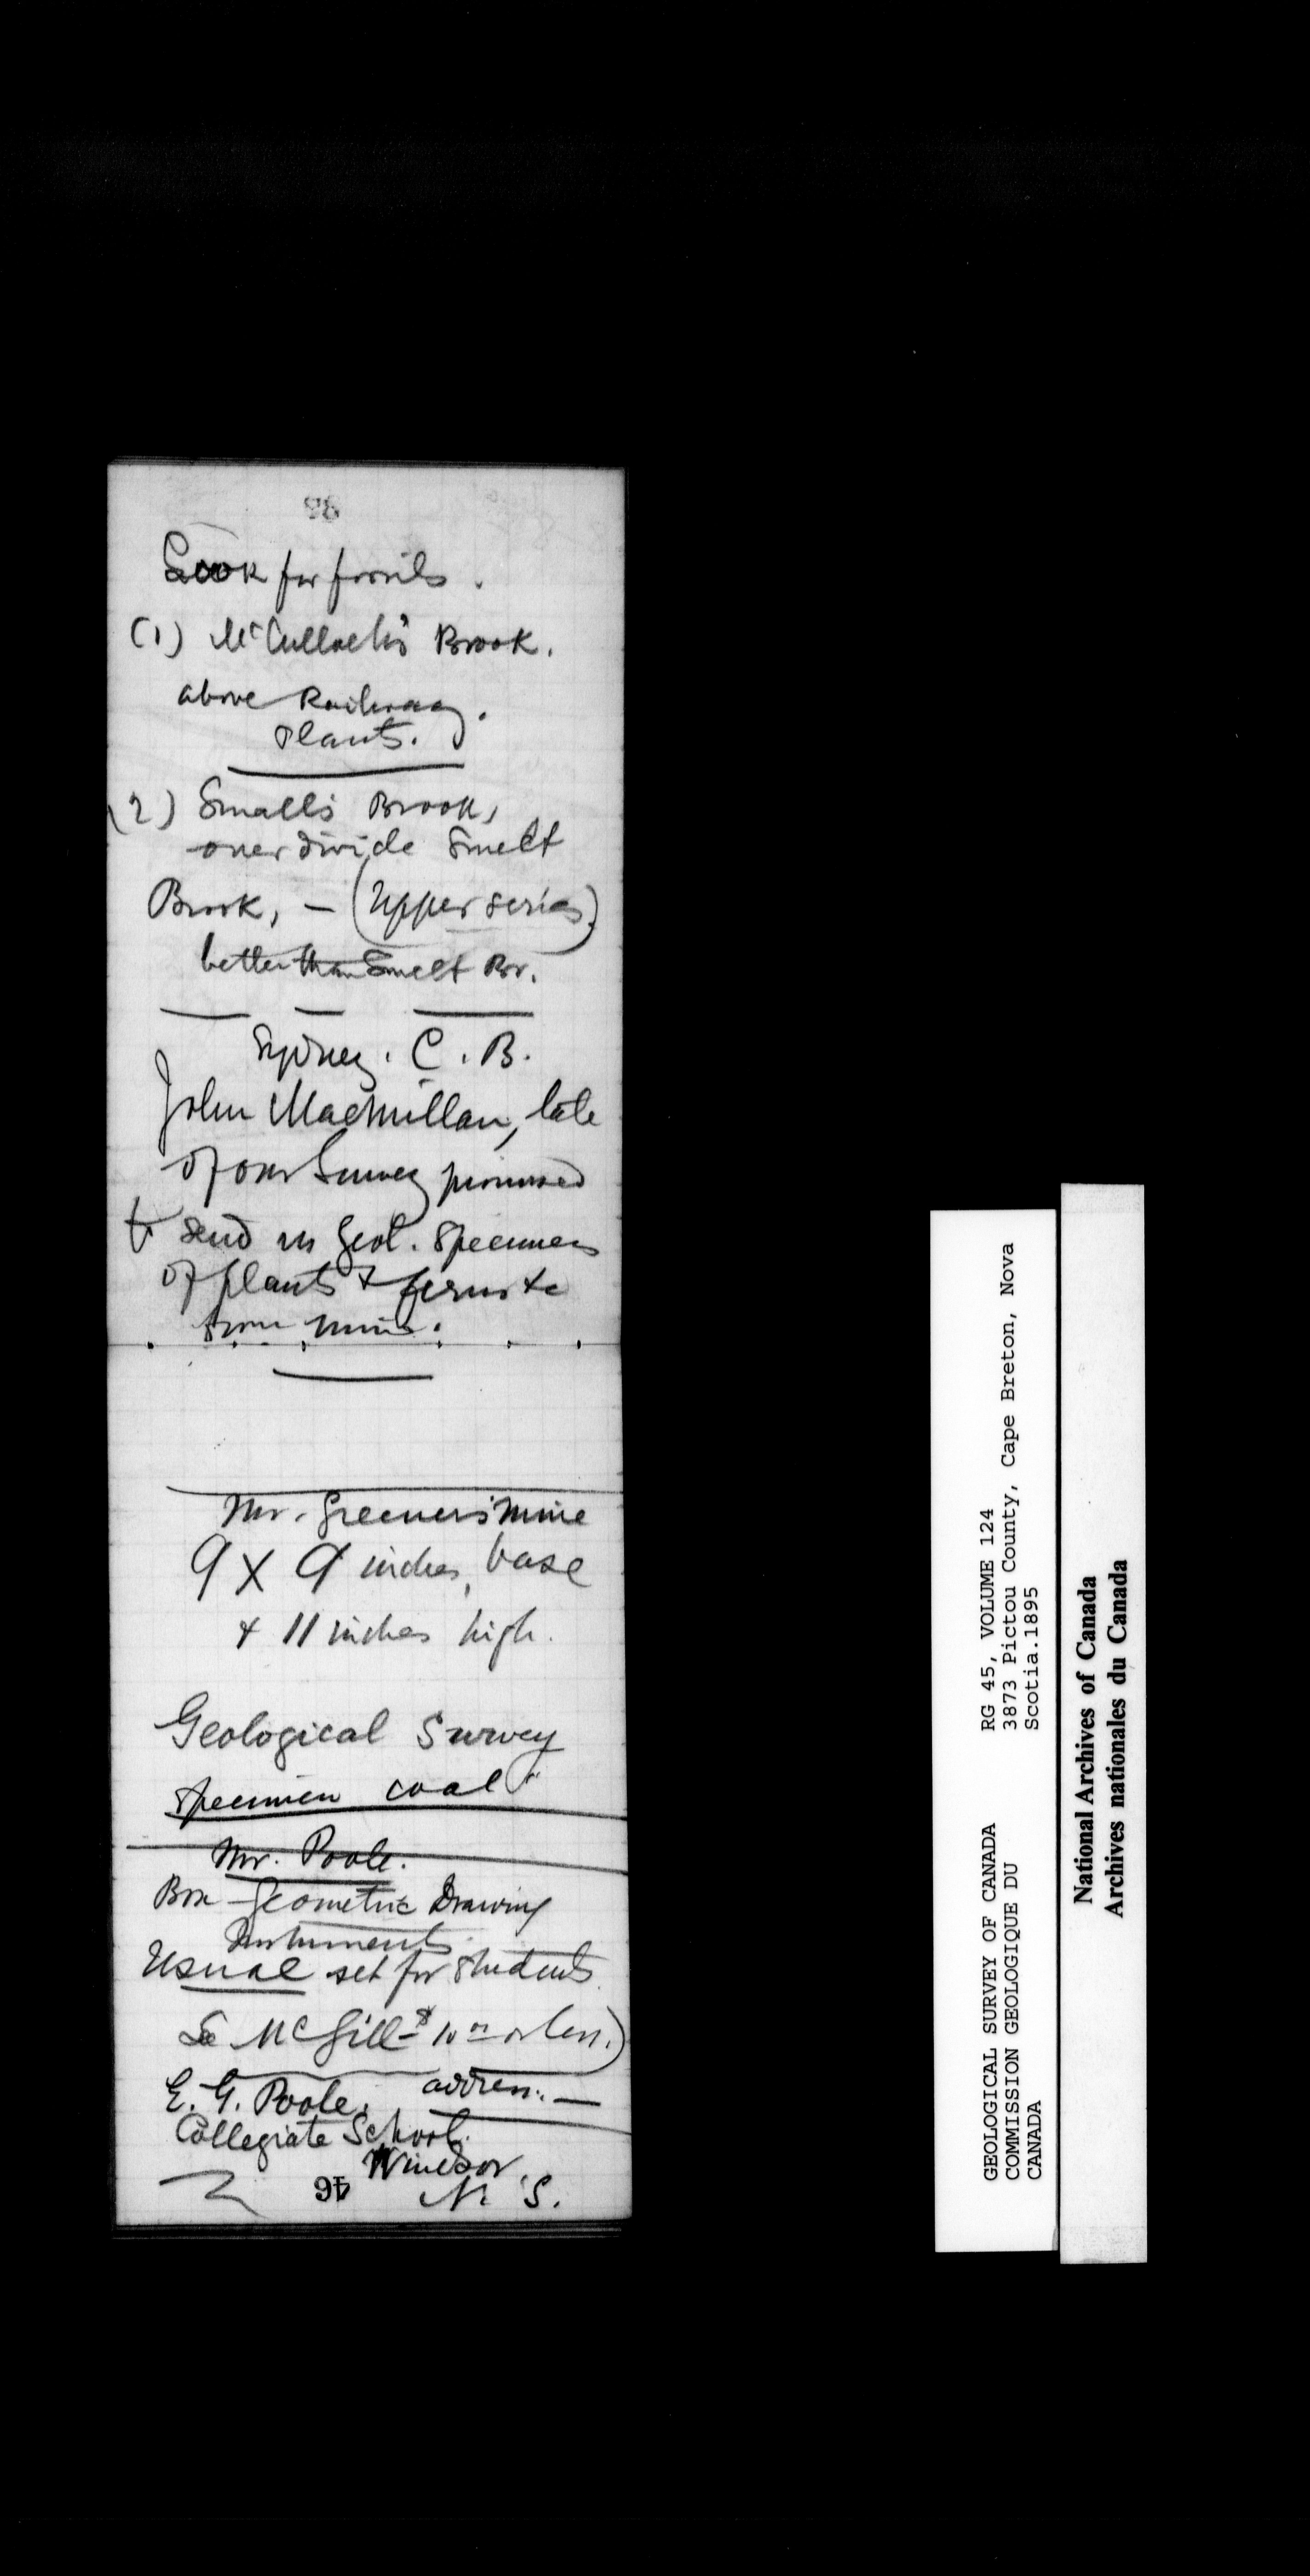 Look for fossils.
(1) McCulloch's Brook.
above Railway.
Plants.
(2) Small's Brook,
over divide Smelt
Brook, — (Upper series)
better than Smelt Br.
Sydney. C. B.
John MacMillan, late
of our Survey promised
to send us Geol. Specimens
of plants & ferns &c
from mine.
Mr. Greener's mine
9 X 9 inches, base
& 11 inches high.
Geological Survey
Specimen coal
Mr. Poole.
Box Geometric Drawing
Instruments.
Usual set for students
McGill $10 or less.)
E. G. Poole. address: —
Collegiate School.
Windsor
N. S.
46
GEOLOGICAL SURVEY OF CANADA
COMMISSION GEOLOGIQUE DU
CANADA
RG 45, VOLUME 124
3873 Pictou County, Cape Breton, Nova
Scotia.1895
National Archives of Canada
Archives nationales du Canada